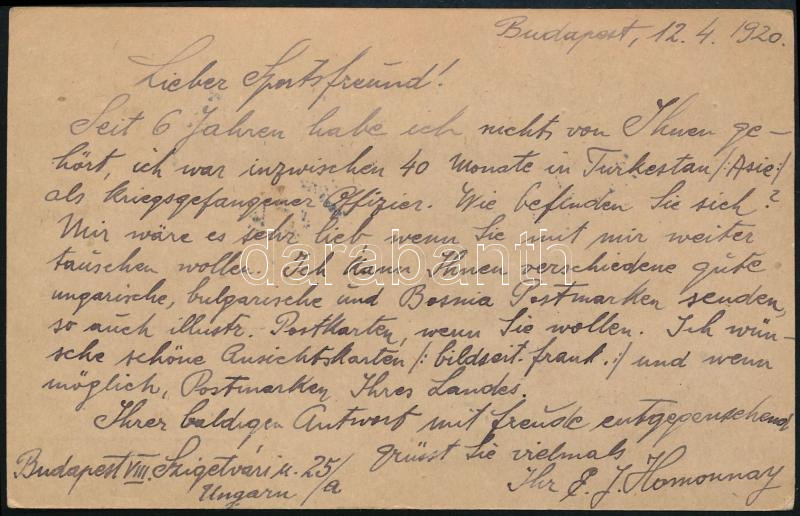 Budapest, 12. 4. 1920.
Lieber Sportsfreund!
Seit 6 Jahren habe ich nichts von Ihnen ge-
hört, ich war inzwischen 40 Monate in Turkestan /:Asie:/
als kriegsgefangener Offizier. Wie befinden Sie sich?
Mir wäre es sehr lieb wenn Sie mit mir weiter
tauschen wollen. Ich kann Ihnen verschiedene gute
ungarische, bulgarische und Bosnia Postmarken senden,
so auch illustr. Postkarten, wenn Sie wollen. Ich wün-
sche schöne Ansichtskarten /: bildseit. frank. :/ und wenn
möglich, Postmarken Ihres Landes.
Ihrer baldigen Antwort mit freude entgegensehend
grüsst Sie vielmals
Ihr E. J. Homonnay
Budapest VIII. Szigetvári u. 25/a
Ungarn
darabanth